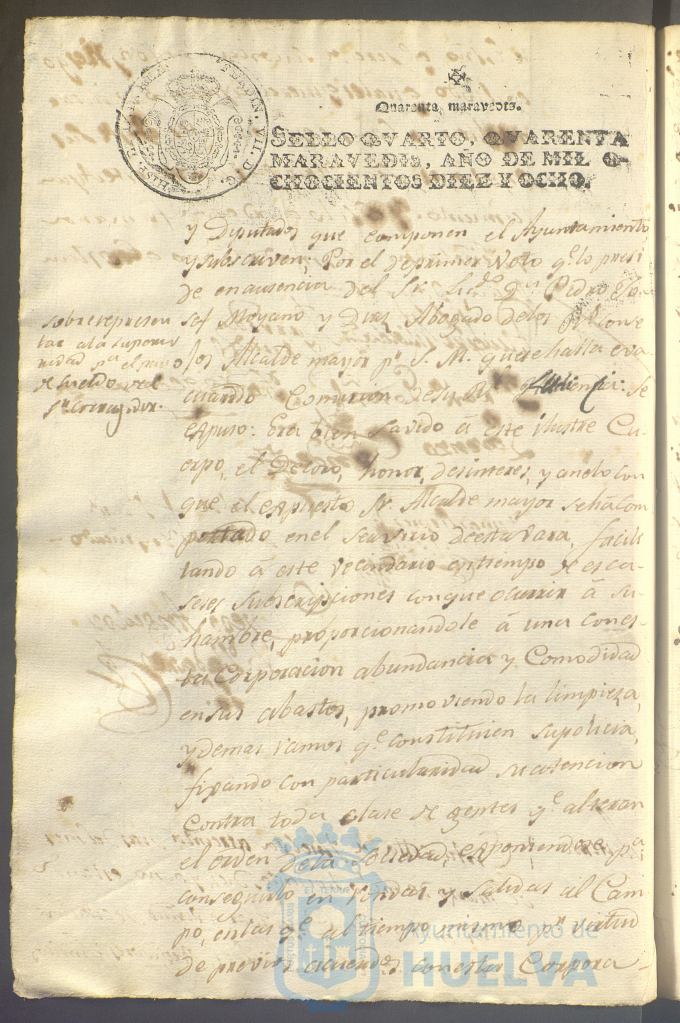 Quarenta maravedis.
SELLO QVARTO, QVARENTA
MARAVEDIS, AÑO DE MIL O-
CHOCIENTOS DIEZ Y OCHO.
y Diputados que componen el Ayuntamiento
y subscriven; Por el de primer Voto qe. lo presi
de en ausencia del Sr. Licdo. Dn. Pedro Jo-
sef Moyano y Diaz Abogado de los Rs. Conse
jos Alcalde mayor pr. S. M. que se halla eva
cuando Comision de su Rl. se
espuso: Era bien savido á este ilustre Cu-
erpo, el Decoro, honor, desinteres, y anelo con
que el espuesto Sr. Alcalde mayor se há com
portado en el Servicio de esta Vara, facili
tando á este Vecindario en tiempo de esca-
seses Subscripciones con que ocurrir á su
hambre, proporcionandole á una con es-
ta Corporacion abundancia y Comodidad
en sus abastos, promoviendo la limpieza,
y demas ramos qe. constituien su policia,
fixando con particularidad su atencion
Contra toda clase de gentes qe. alteran
el orden de la Sociedad, esponiendose pa.
conseguirlo en rondas y Salidas al Cam-
po, en las qe. al tiempo mismo pr. virtud
de previos acuerdos con esta Corpora-
sobre represen
tar á la superio
ridad pa. el
de sueldo del
Sr. Corregidor.
Ayuntamiento de
HUELVA